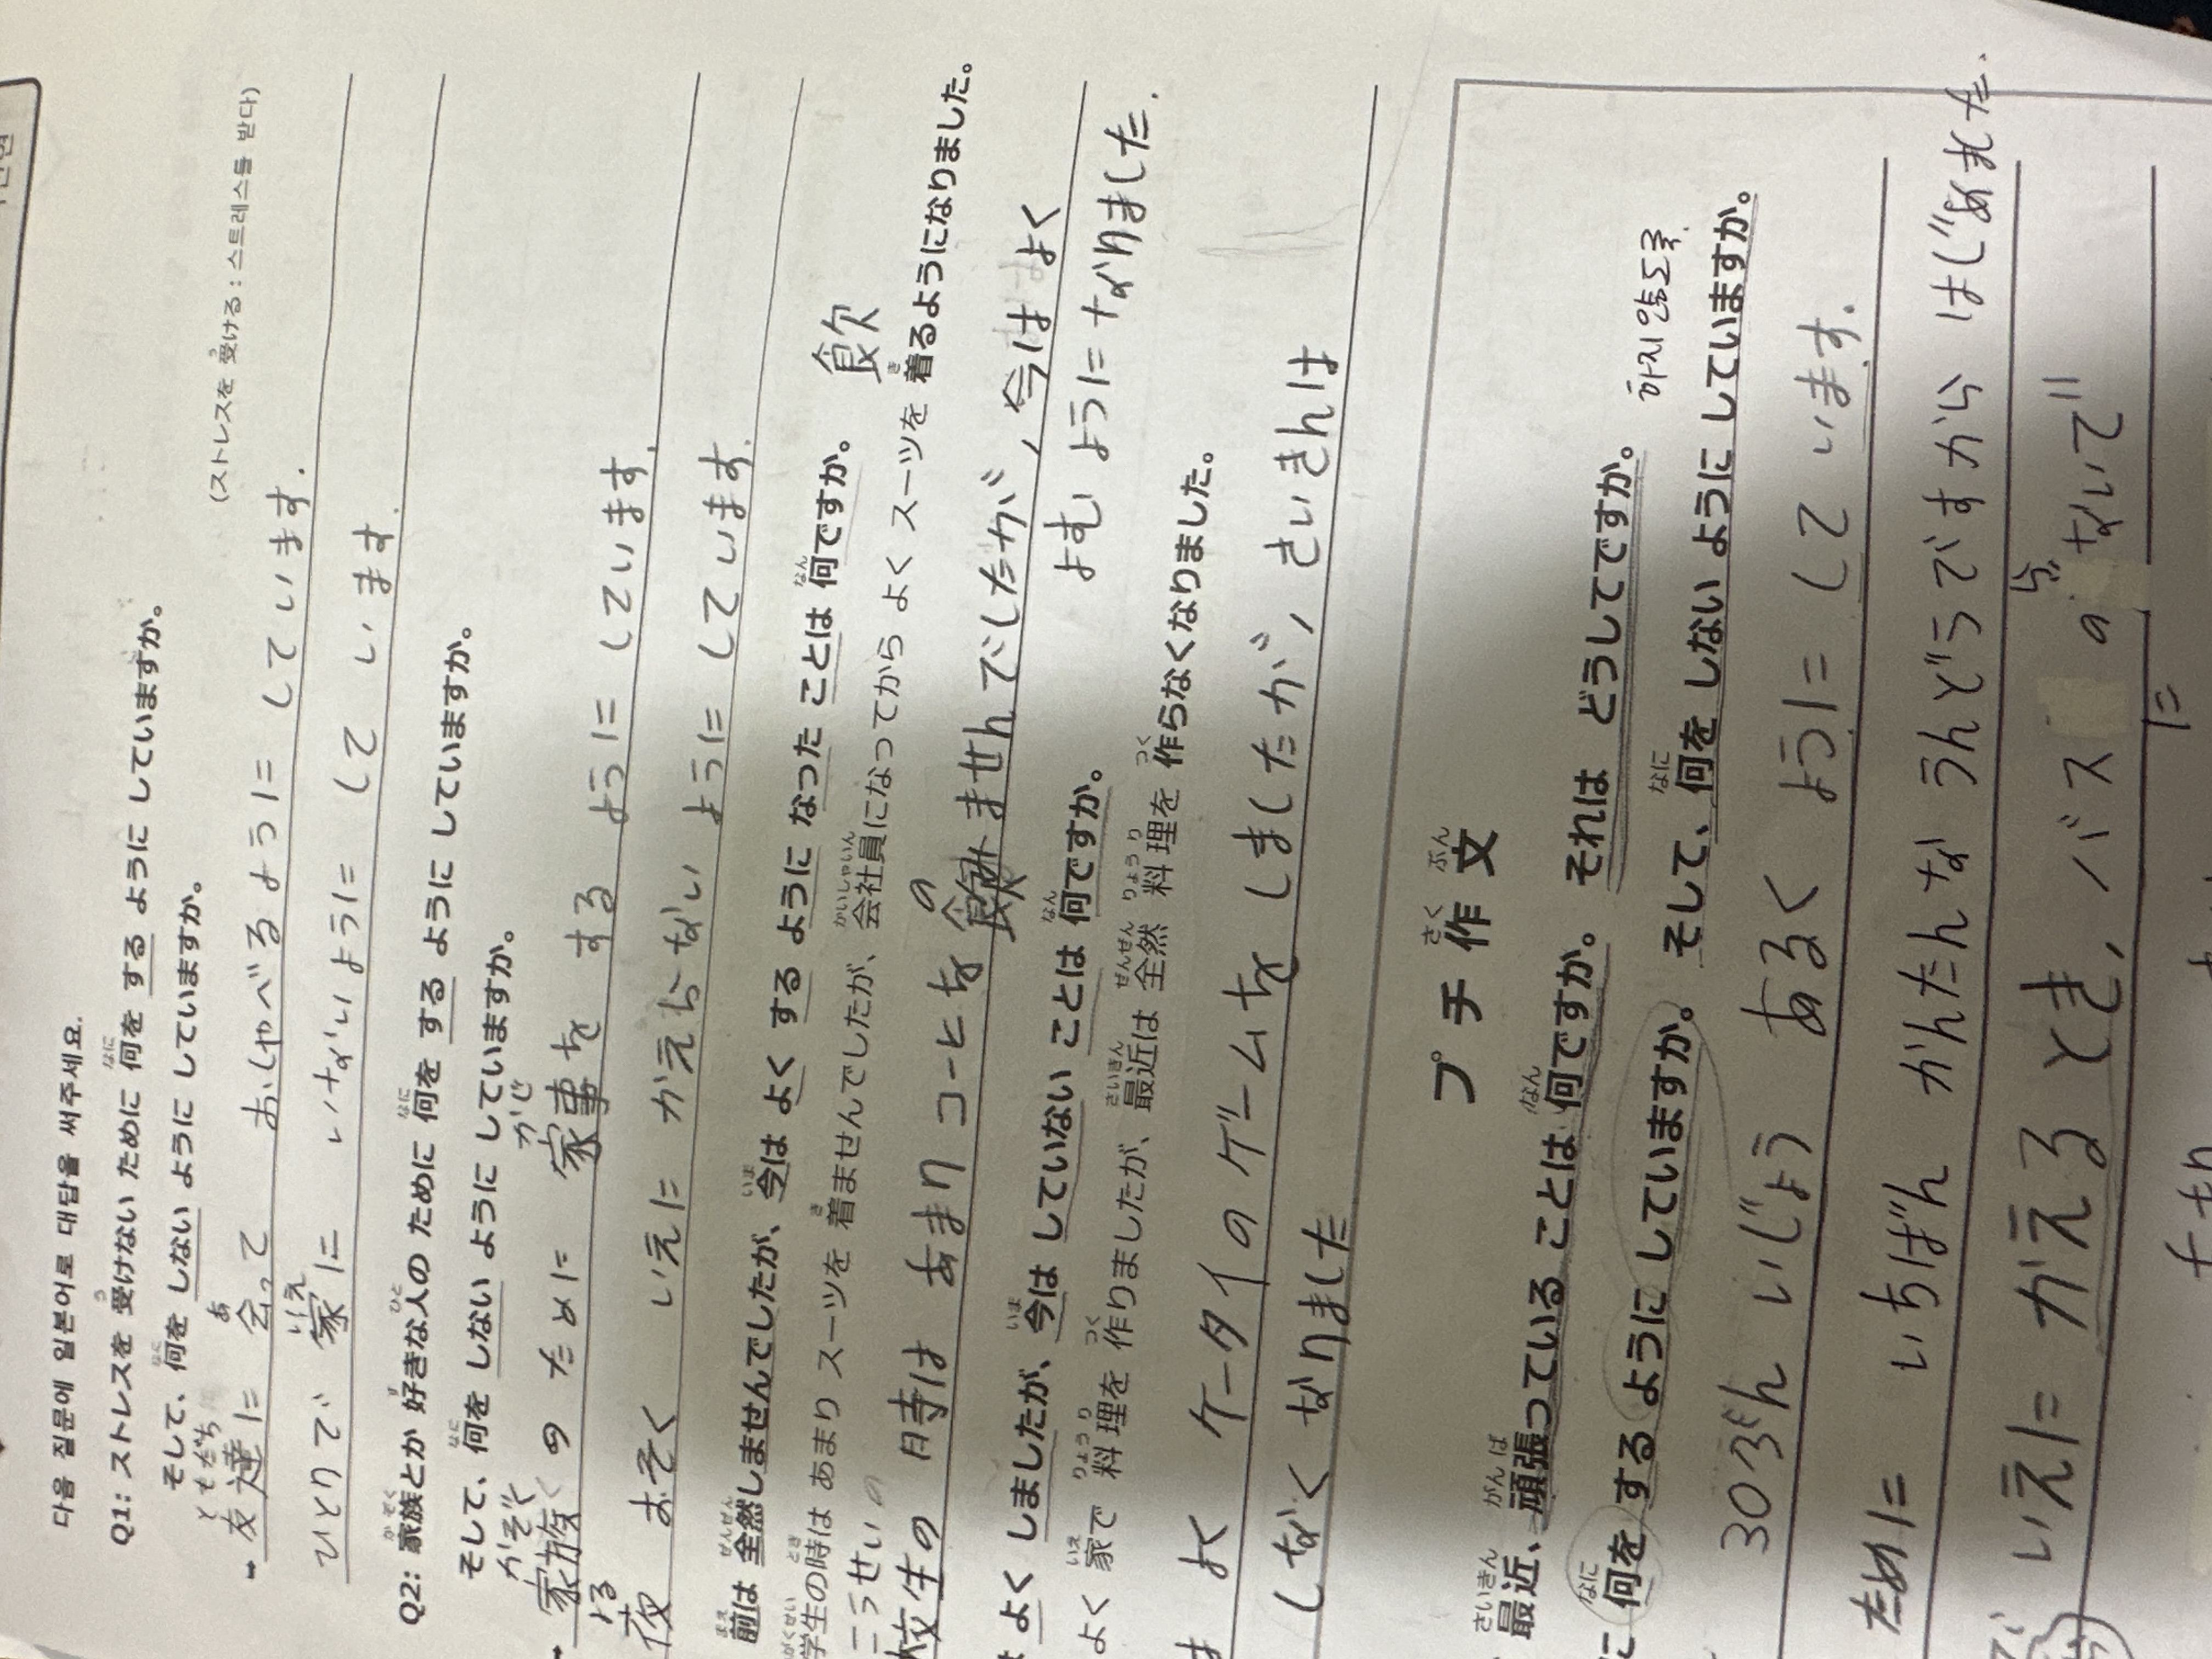 다음 질문에 일본어로 대답을 써주세요.
Q1: ストレスを 受けない ために 何を する ように していますか。
そして、何を しない ように していますか。
(ストレスを 受ける : 스트레스를 받다)
友達に 会って おしゃべるように しています.
ひとりで 家に いないように して います.
Q2: 家族とか 好きな人の ために 何を する ように していますか。
そして、何を しない ように していますか。
家族の ために 家事を する ように しています.
夜 おそく いえに かえらない ように しています.
前は 全然しませんでしたが、今は よく する ように なった ことは 何ですか。
学生の時は あまり スーツを 着ませんでしたが、会社員になってから よく スーツを 着るようになりました。
飲
校生の 時は あまり コーヒを 飲みませんでしたが, 今は よく
よむ ように なりました.
よく しましたが、今は していない ことは 何ですか。
よく 家で 料理を 作りましたが、最近は 全然 料理を 作らなくなりました。
よく ケータイの ゲームを しましたが, さいきんは
しなくなりました
プチ作文
最近、頑張っている ことは 何ですか。 それは どうしてですか。
何を する ように していますか。 そして、何を しない ように していますか。
하지 않도록
30ぷん いじょう あるく ように して います.
ために いちばん かんたんな うんどうですから はじめました.
いえに かえる とき, バス に のらないで